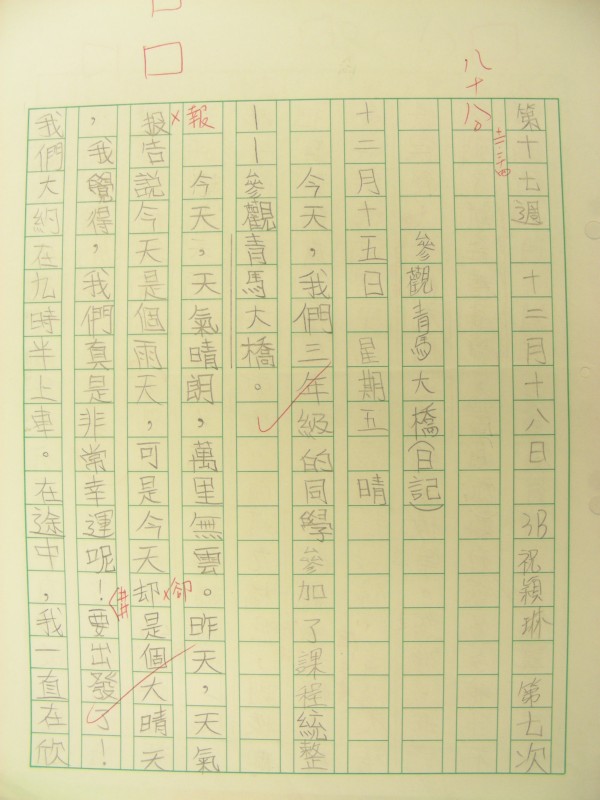 第十七週 十二月十八日 3B 祝穎琳 第七次
八十分
參觀青馬大橋(日記)
十二月十五日 星期五 晴
今天,我們三年級的同學參加了課程統整
——參觀青馬大橋。
今天,天氣晴朗,萬里無雲。昨天,天氣
報
报告說今天是個雨天,可是今天却是個大晴天
卻
,我覺得,我們真是非常幸運呢!要出發了!
我們大約在九時半上車。在途中,我一直在欣